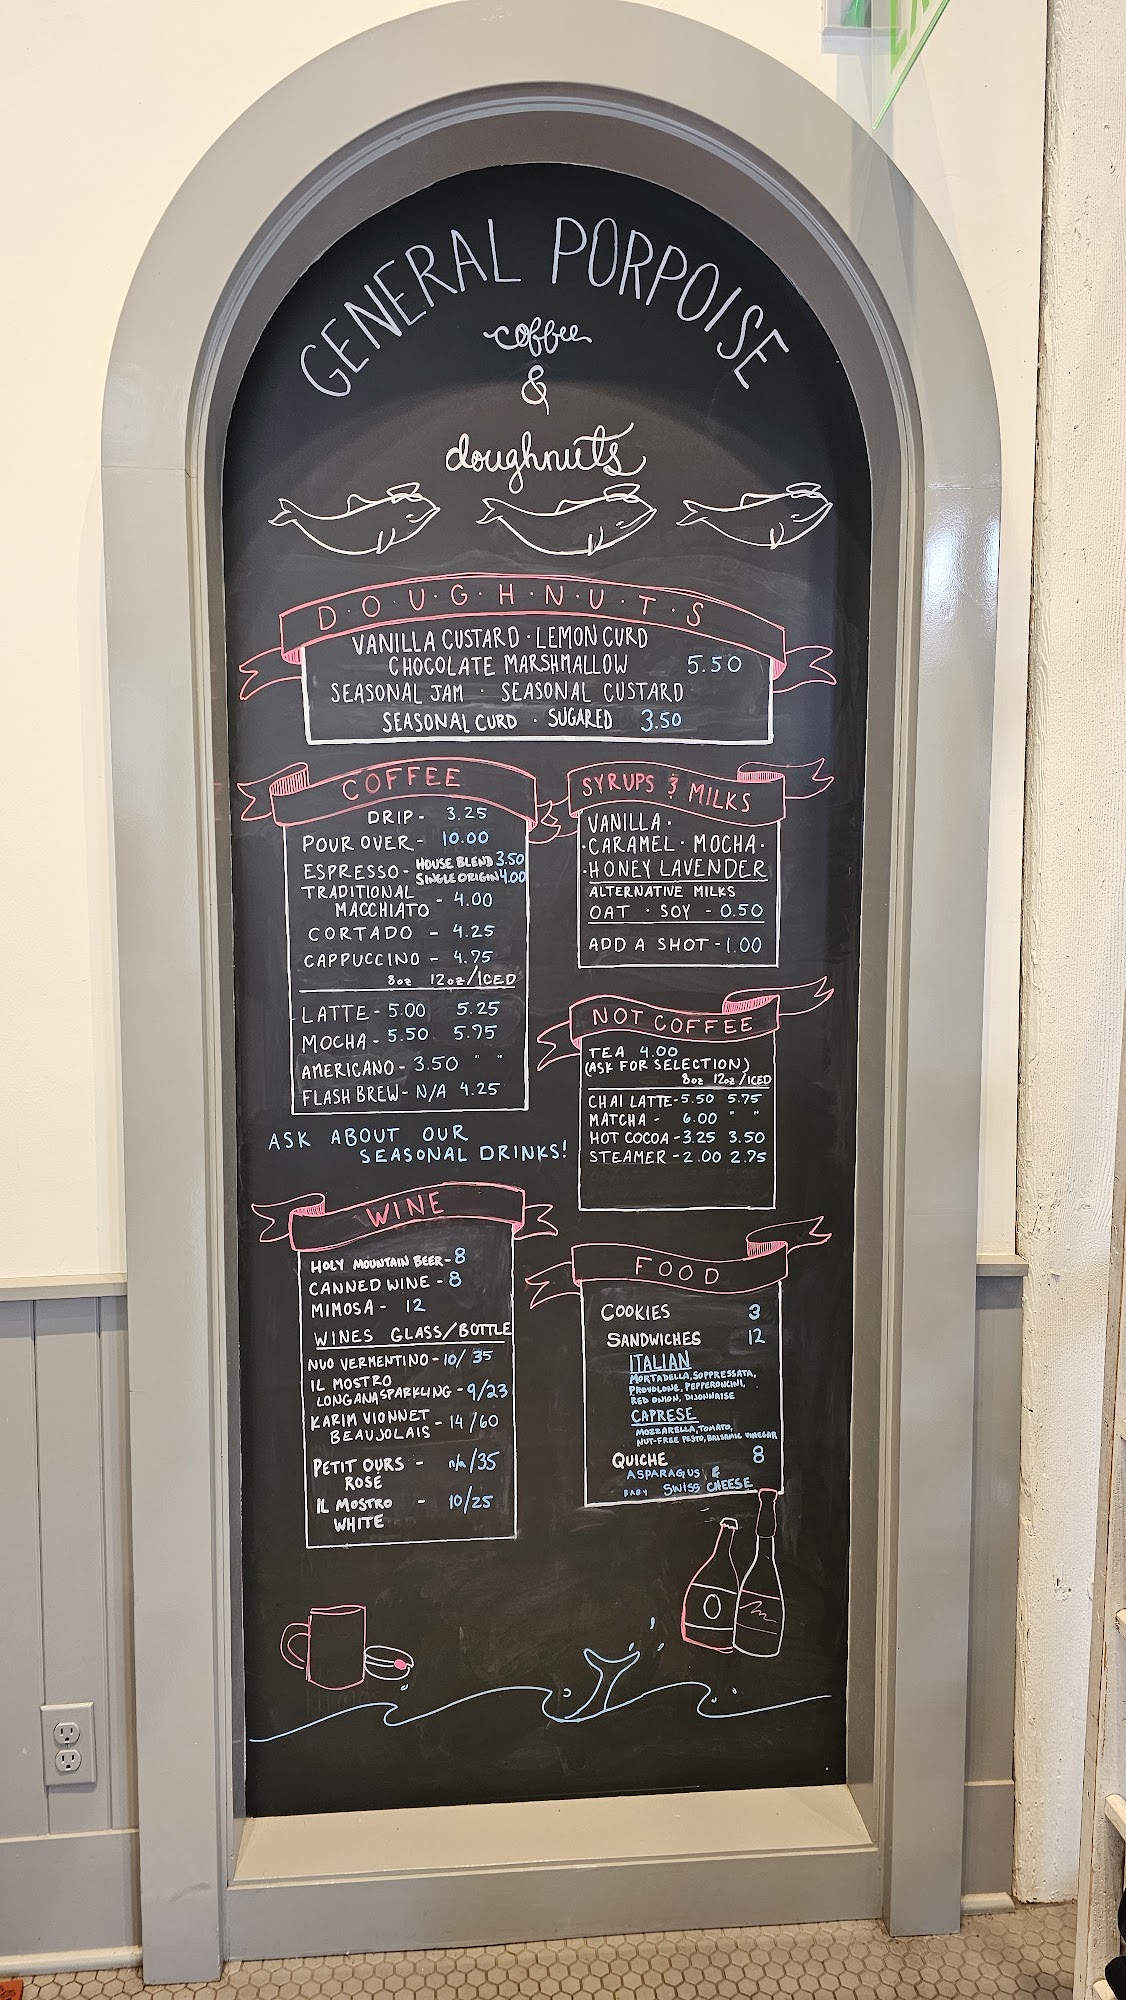 GENERAL PORPOISE
coffee
&
doughnuts
D·O·U·G·H·N·U·T·S
VANILLA CUSTARD · LEMON CURD
CHOCOLATE MARSHMALLOW 5.50
SEASONAL JAM · SEASONAL CUSTARD
SEASONAL CURD · SUGARED 3.50
COFFEE
DRIP - 3.25
POUR OVER - 10.00
ESPRESSO - HOUSE BLEND 3.50
SINGLE ORIGIN 4.00
TRADITIONAL
MACCHIATO - 4.00
CORTADO - 4.25
CAPPUCCINO - 4.75
8oz 12oz/ICED
LATTE - 5.00 5.25
MOCHA - 5.50 5.75
AMERICANO - 3.50 " "
FLASH BREW - N/A 4.25
ASK ABOUT OUR
SEASONAL DRINKS!
SYRUPS & MILKS
VANILLA ·
· CARAMEL · MOCHA ·
· HONEY LAVENDER
ALTERNATIVE MILKS
OAT · SOY - 0.50
ADD A SHOT - 1.00
NOT COFFEE
TEA 4.00
(ASK FOR SELECTION)
8oz 12oz/ICED
CHAI LATTE - 5.50 5.75
MATCHA - 6.00 " "
HOT COCOA - 3.25 3.50
STEAMER - 2.00 2.75
WINE
HOLY MOUNTAIN BEER - 8
CANNED WINE - 8
MIMOSA - 12
WINES GLASS/BOTTLE
NUO VERMENTINO - 10/35
IL MOSTRO
LONGANA SPARKLING - 9/23
KARIM VIONNET
BEAUJOLAIS - 14/60
PETIT OURS - n/a/35
ROSÉ
IL MOSTRO - 10/25
WHITE
FOOD
COOKIES 3
SANDWICHES 12
ITALIAN
MORTADELLA, SOPPRESSATA,
PROVOLONE, PEPPERONCINI,
RED ONION, DIJONNAISE
CAPRESE
MOZZARELLA, TOMATO,
NUT-FREE PESTO, BALSAMIC VINEGAR
QUICHE 8
ASPARAGUS &
BABY SWISS CHEESE